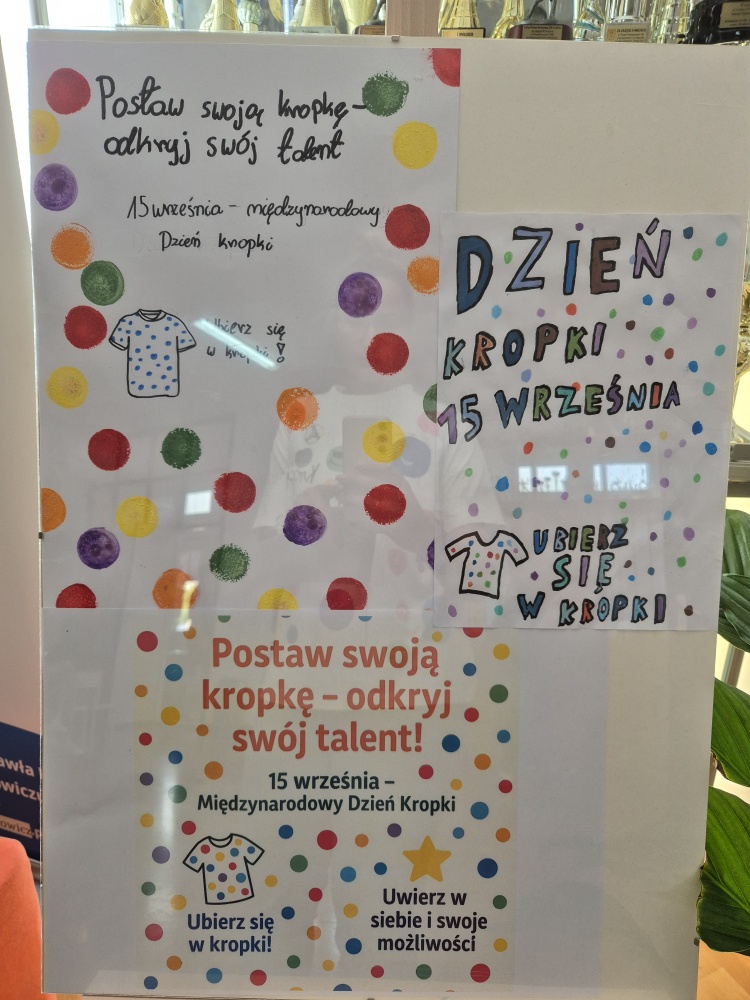 Postaw swoją kropkę-
odkryj swój talent
15 września - międzynarodowy
Dzień kropki
Ubierz się
w kropki!
DZIEŃ
KROPKI
15 WRZEŚNIA
UBIERZ
SIĘ
W KROPKI
Postaw swoją
kropkę – odkryj
swój talent!
15 września –
Międzynarodowy Dzień Kropki
Ubierz się
w kropki!
Uwierz w
siebie i swoje
możliwości